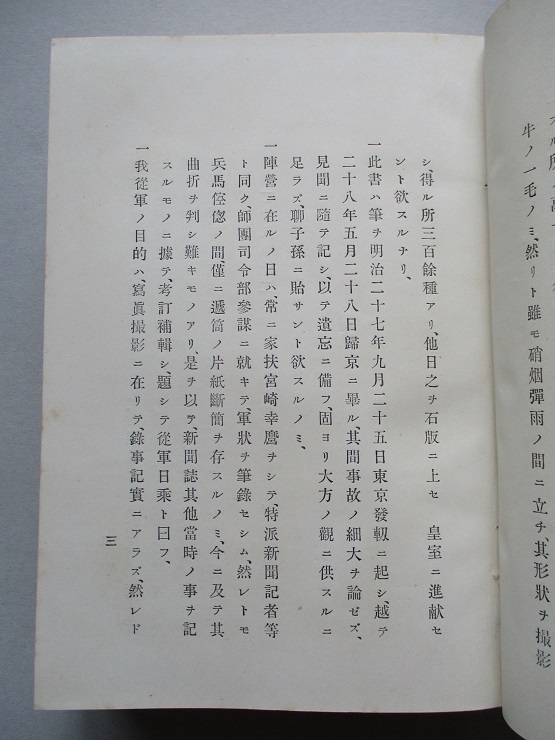 牛ノ一毛ノミ、然リト雖モ硝烟彈雨ノ間ニ立チ、其形狀ヲ撮影
シ、得ル所三百餘種アリ、他日之ヲ石版ニ上セ　皇室ニ進献セ
ント欲スルナリ、
一此書ハ筆ヲ明治二十七年九月二十五日東京發軔ニ起シ、越テ
二十八年五月二十八日歸京ニ畢ル、其間事故ノ細大ヲ論ゼズ、
見聞ニ隨テ記シ、以テ遺忘ニ備フ、固ヨリ大方ノ觀ニ供スルニ
足ラズ、聊子孫ニ貽サント欲スルノミ、
一陣營ニ在ルノ日ハ、常ニ家扶宮崎幸麿ヲシテ、特派新聞記者等
ト同ク、師團司令部參謀ニ就キテ、軍狀ヲ筆錄セシム、然レトモ
兵馬倥偬ノ間、僅ニ遞筒ノ片紙斷簡ヲ存スルノミ、今ニ及テ其
曲折ヲ判シ難キモノアリ、是ヲ以テ、新聞誌其他當時ノ事ヲ記
スルモノニ據テ、考訂補輯シ、題シテ從軍日乘ト曰フ、
一我從軍ノ目的ハ、寫眞撮影ニ在リテ、錄事記實ニアラズ、然レド
三